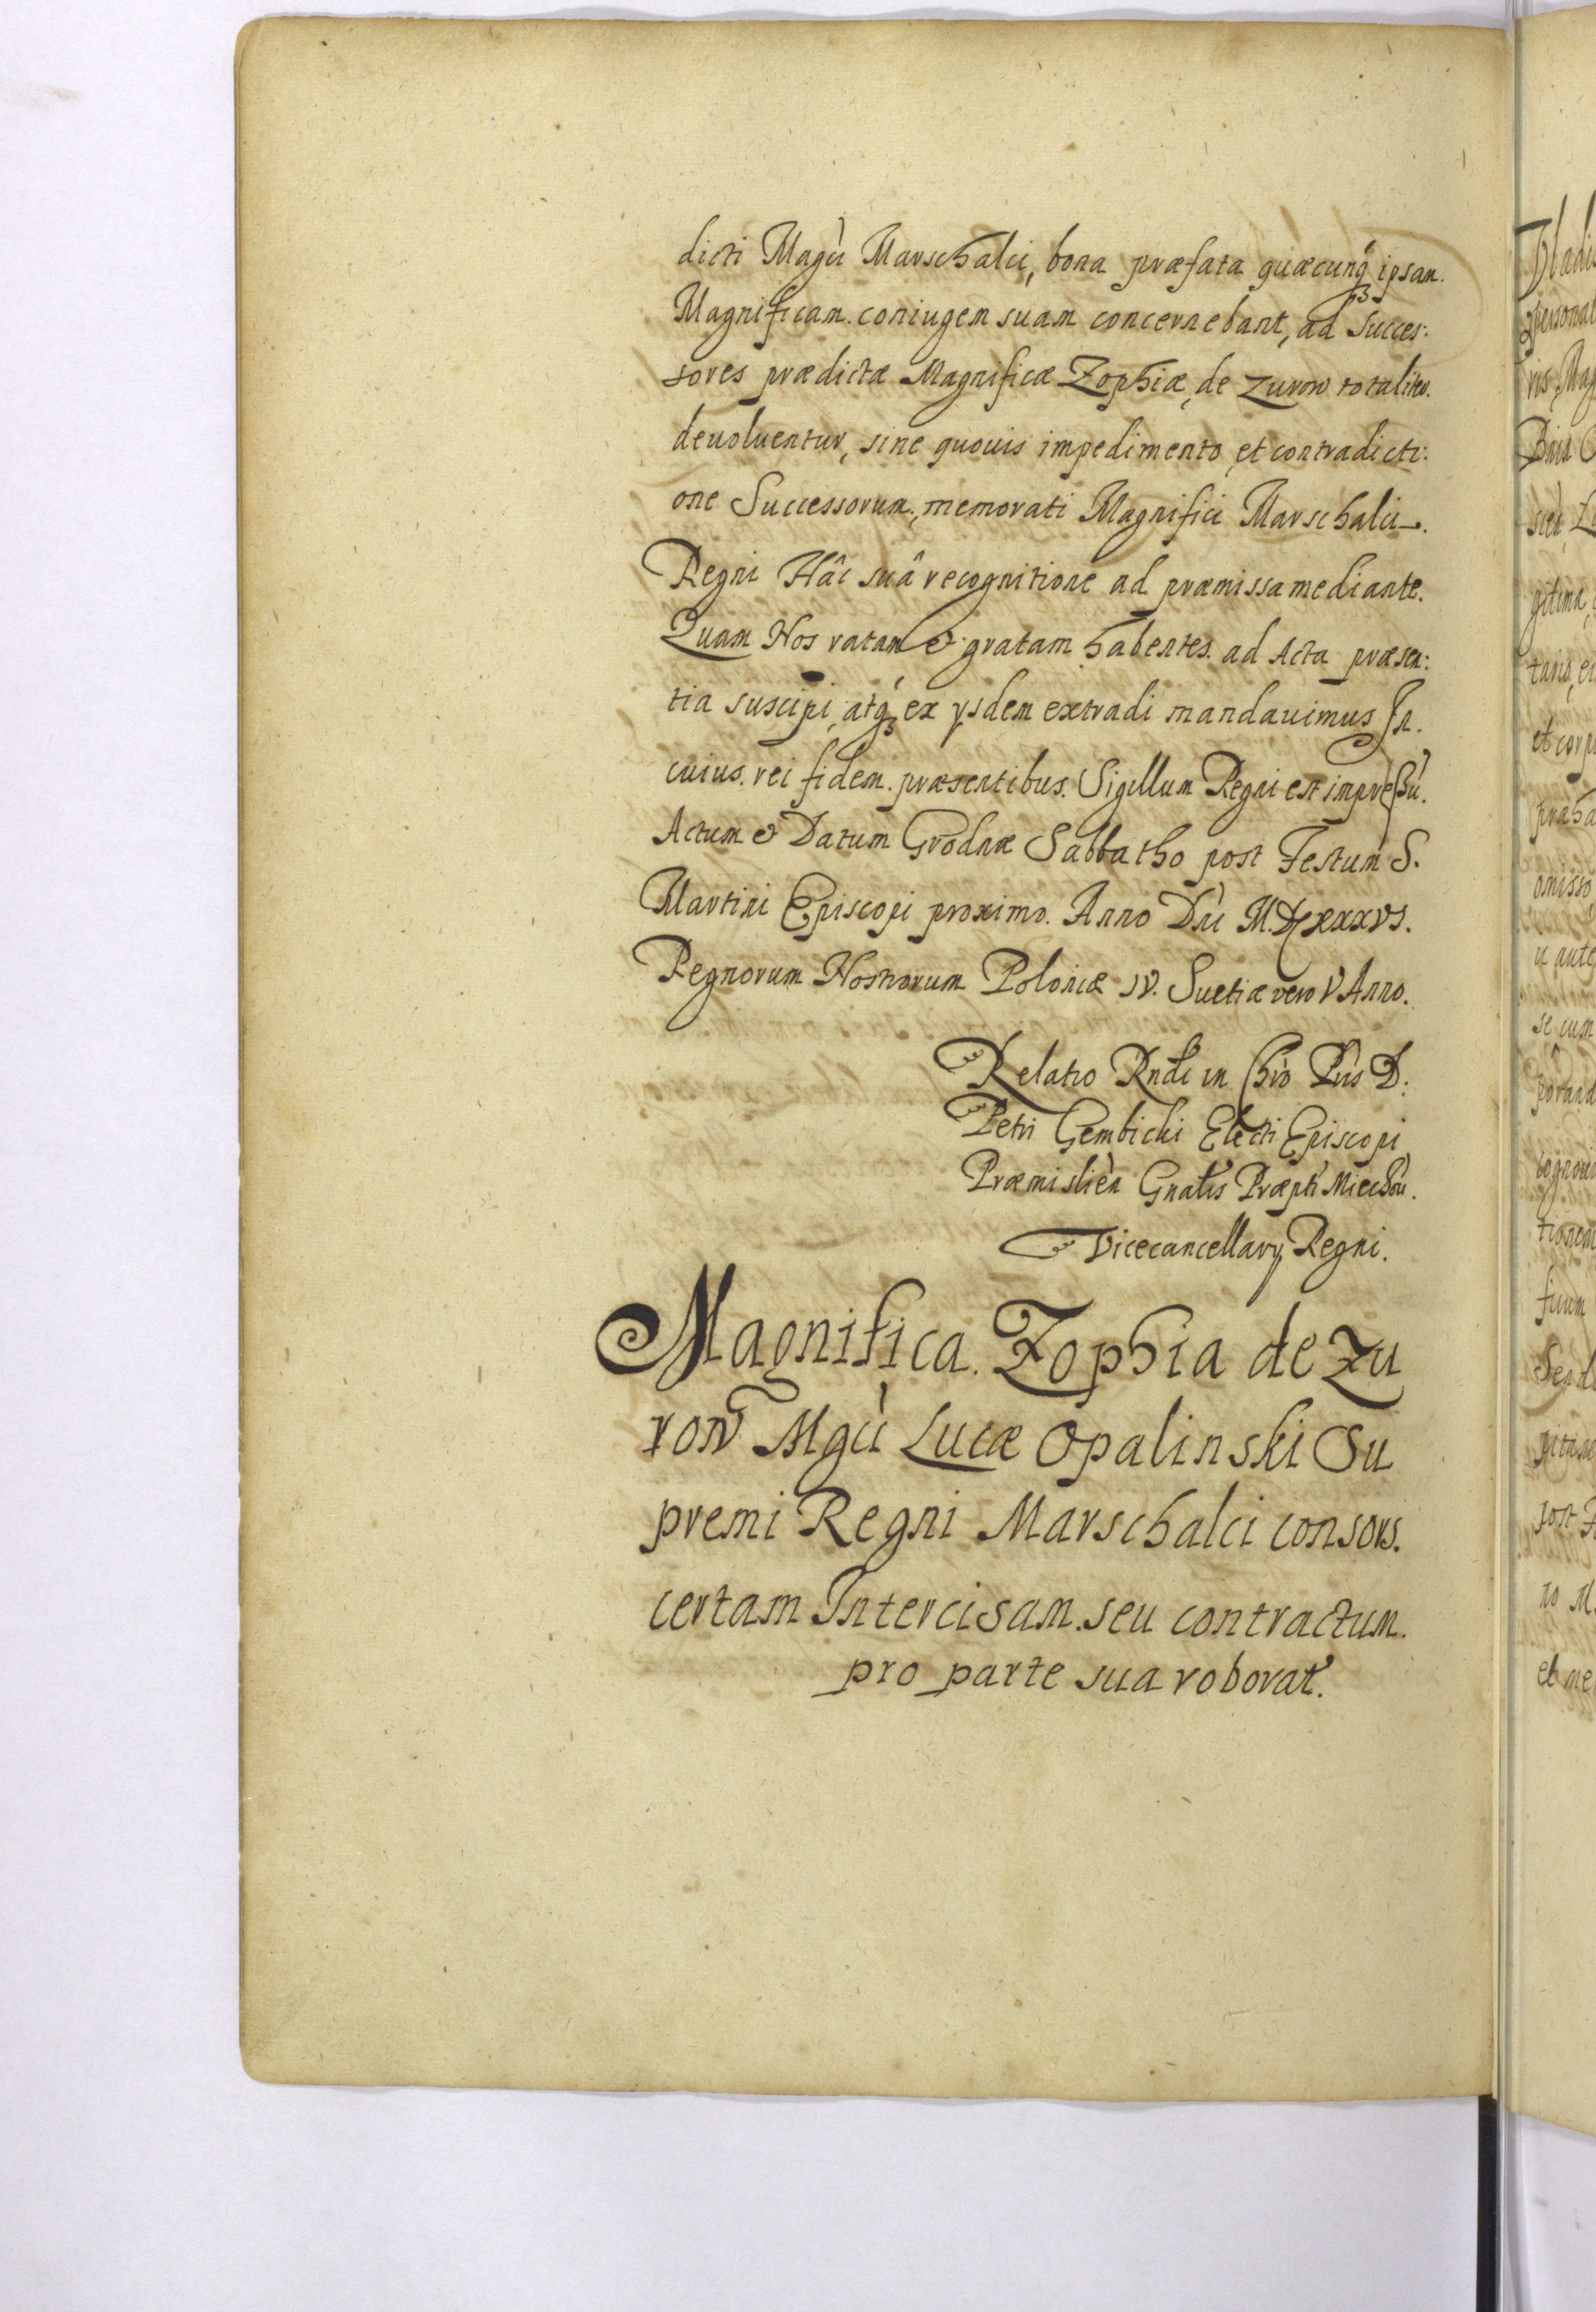 dicti Magci Marschalci, bona præfata quæcunq3 ipsam.
Magnificam. coniugem suam concernebant, ad Succes:
sores prædictæ Magnificæ Zophiæ, de Zurow totaliter.
deuoluentur, sine quouis impedimento, et contradicti:
one Successorum, memorati Magnifici Marschalci.
Regni Hâc suâ recognitione ad præmissa mediante.
Quam Nos ratam & gratam habentes. ad Acta præsen:
tia suscipi, atq3 ex ijsdem extradi mandauimus In.
cuius. rei fidem. præsentibus. Sigillum Regni est impressũ.
Actum & Datum Grodnæ Sabbatho post Festum S.
Martini Episcopi proximo. Anno Dni M.DCXXXVI.
Regnorum Nostrorum Poloniæ IV. Suetiæ vero V Anno.
Relatio Rndi in Chro Pris D.
Petri Gembicki Electi Episcopi
Præmislien Gnalis Præpti Miechou.
Vicecancellarij Regni.
Magnifica. Zophia de Zu
row Mgci Lucæ Opalinski Su
premi Regni Marschalci consors.
certam Intercisam. seu contractum.
pro parte sua roborat.